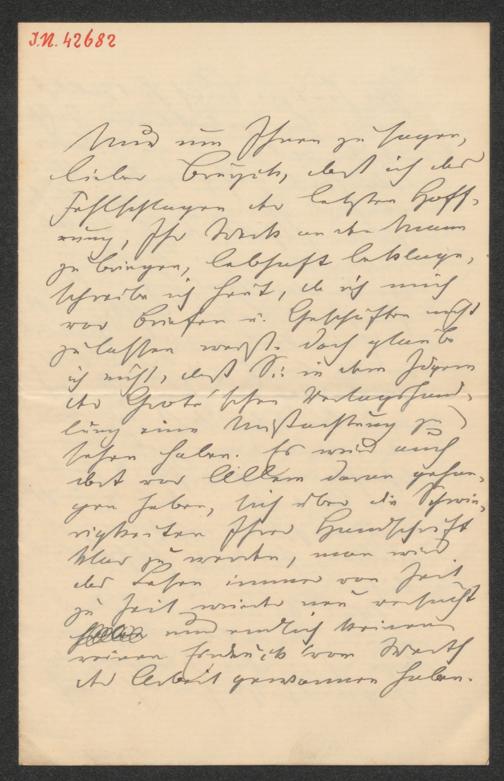 I.N. 42682
Nur um Ihnen zu sagen,
lieber, daß ich das
Fehlschlagen der letzten Hoff-
nung, Ihr Werk an den Mann
zu bringen, lebhaft beklage,
schreibe ich heut, da ich mich
vor Briefen u. Geschäften nicht
zu lassen weiß. Doch glaube
ich nicht, daß Sie in dem Zögern
der Grote'schen Verlagshand-
lung eine Mißachtung zu
sehen haben. Es wird auch
dort vor Allem daran gehan-
gen haben, sich über die Schwie-
rigkeiten Ihrer Handschrift
klar zu werden, man wird
das Lesen immer von Zeit
zu Zeit wieder neu versucht
und endlich keinen
reinen Eindruck vom Werth
der Arbeit gewonnen haben.